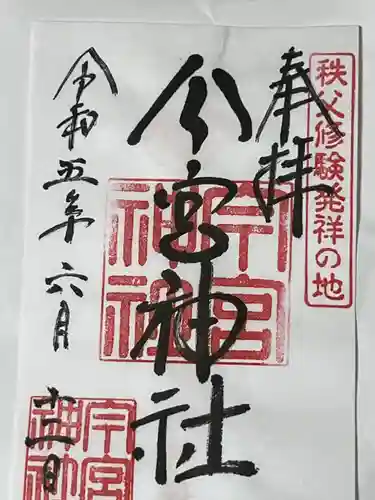 秩父修験発祥の地
奉拝
今宮神社
今宮
神社
令和五年六月十二日
今宮
神社